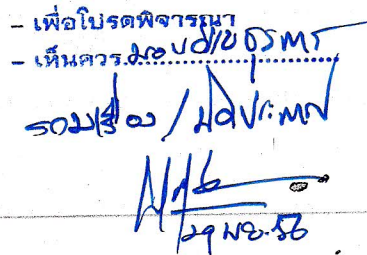 - เพื่อโปรดพิจารณา
- เห็นควร มอบฝ่ายธุรการ
รวมเรื่อง / ปิดประกาศ
29 พ.ย. 56